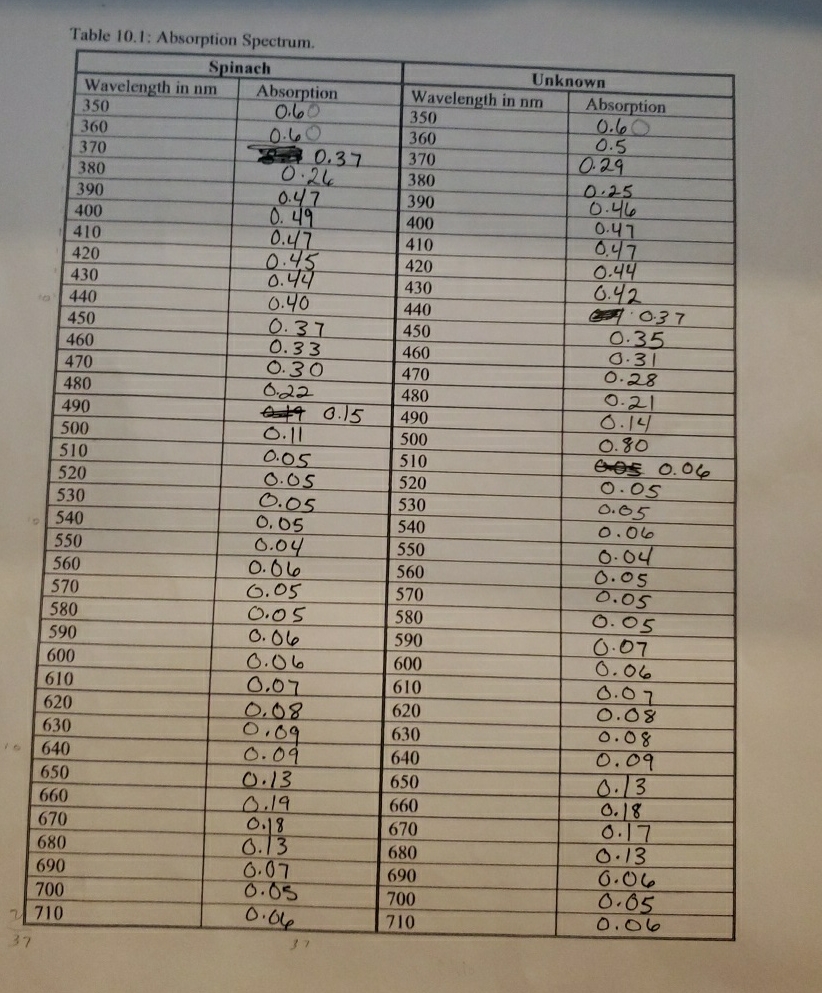 Table 10.1: Absorption Spectrum.
Spinach Unknown
Wavelength in nm Absorption Wavelength in nm Absorption
350 0.60 350 0.60
360 0.60 360 0.5
370 0.37 370 0.29
380 0.26 380 0.25
390 0.47 390 0.46
400 0.49 400 0.47
410 0.47 410 0.47
420 0.45 420 0.44
430 0.44 430 0.42
440 0.40 440 0.37
450 0.37 450 0.35
460 0.33 460 0.31
470 0.30 470 0.28
480 0.22 480 0.21
490 0.19 0.15 490 0.14
500 0.11 500 0.80
510 0.05 510 0.05 0.06
520 0.05 520 0.05
530 0.05 530 0.05
540 0.05 540 0.06
550 0.04 550 0.04
560 0.06 560 0.05
570 0.05 570 0.05
580 0.05 580 0.05
590 0.06 590 0.07
600 0.06 600 0.06
610 0.07 610 0.07
620 0.08 620 0.08
630 0.09 630 0.08
640 0.09 640 0.09
650 0.13 650 0.13
660 0.19 660 0.18
670 0.18 670 0.17
680 0.13 680 0.13
690 0.07 690 0.06
700 0.05 700 0.05
710 0.06 710 0.06
37 37